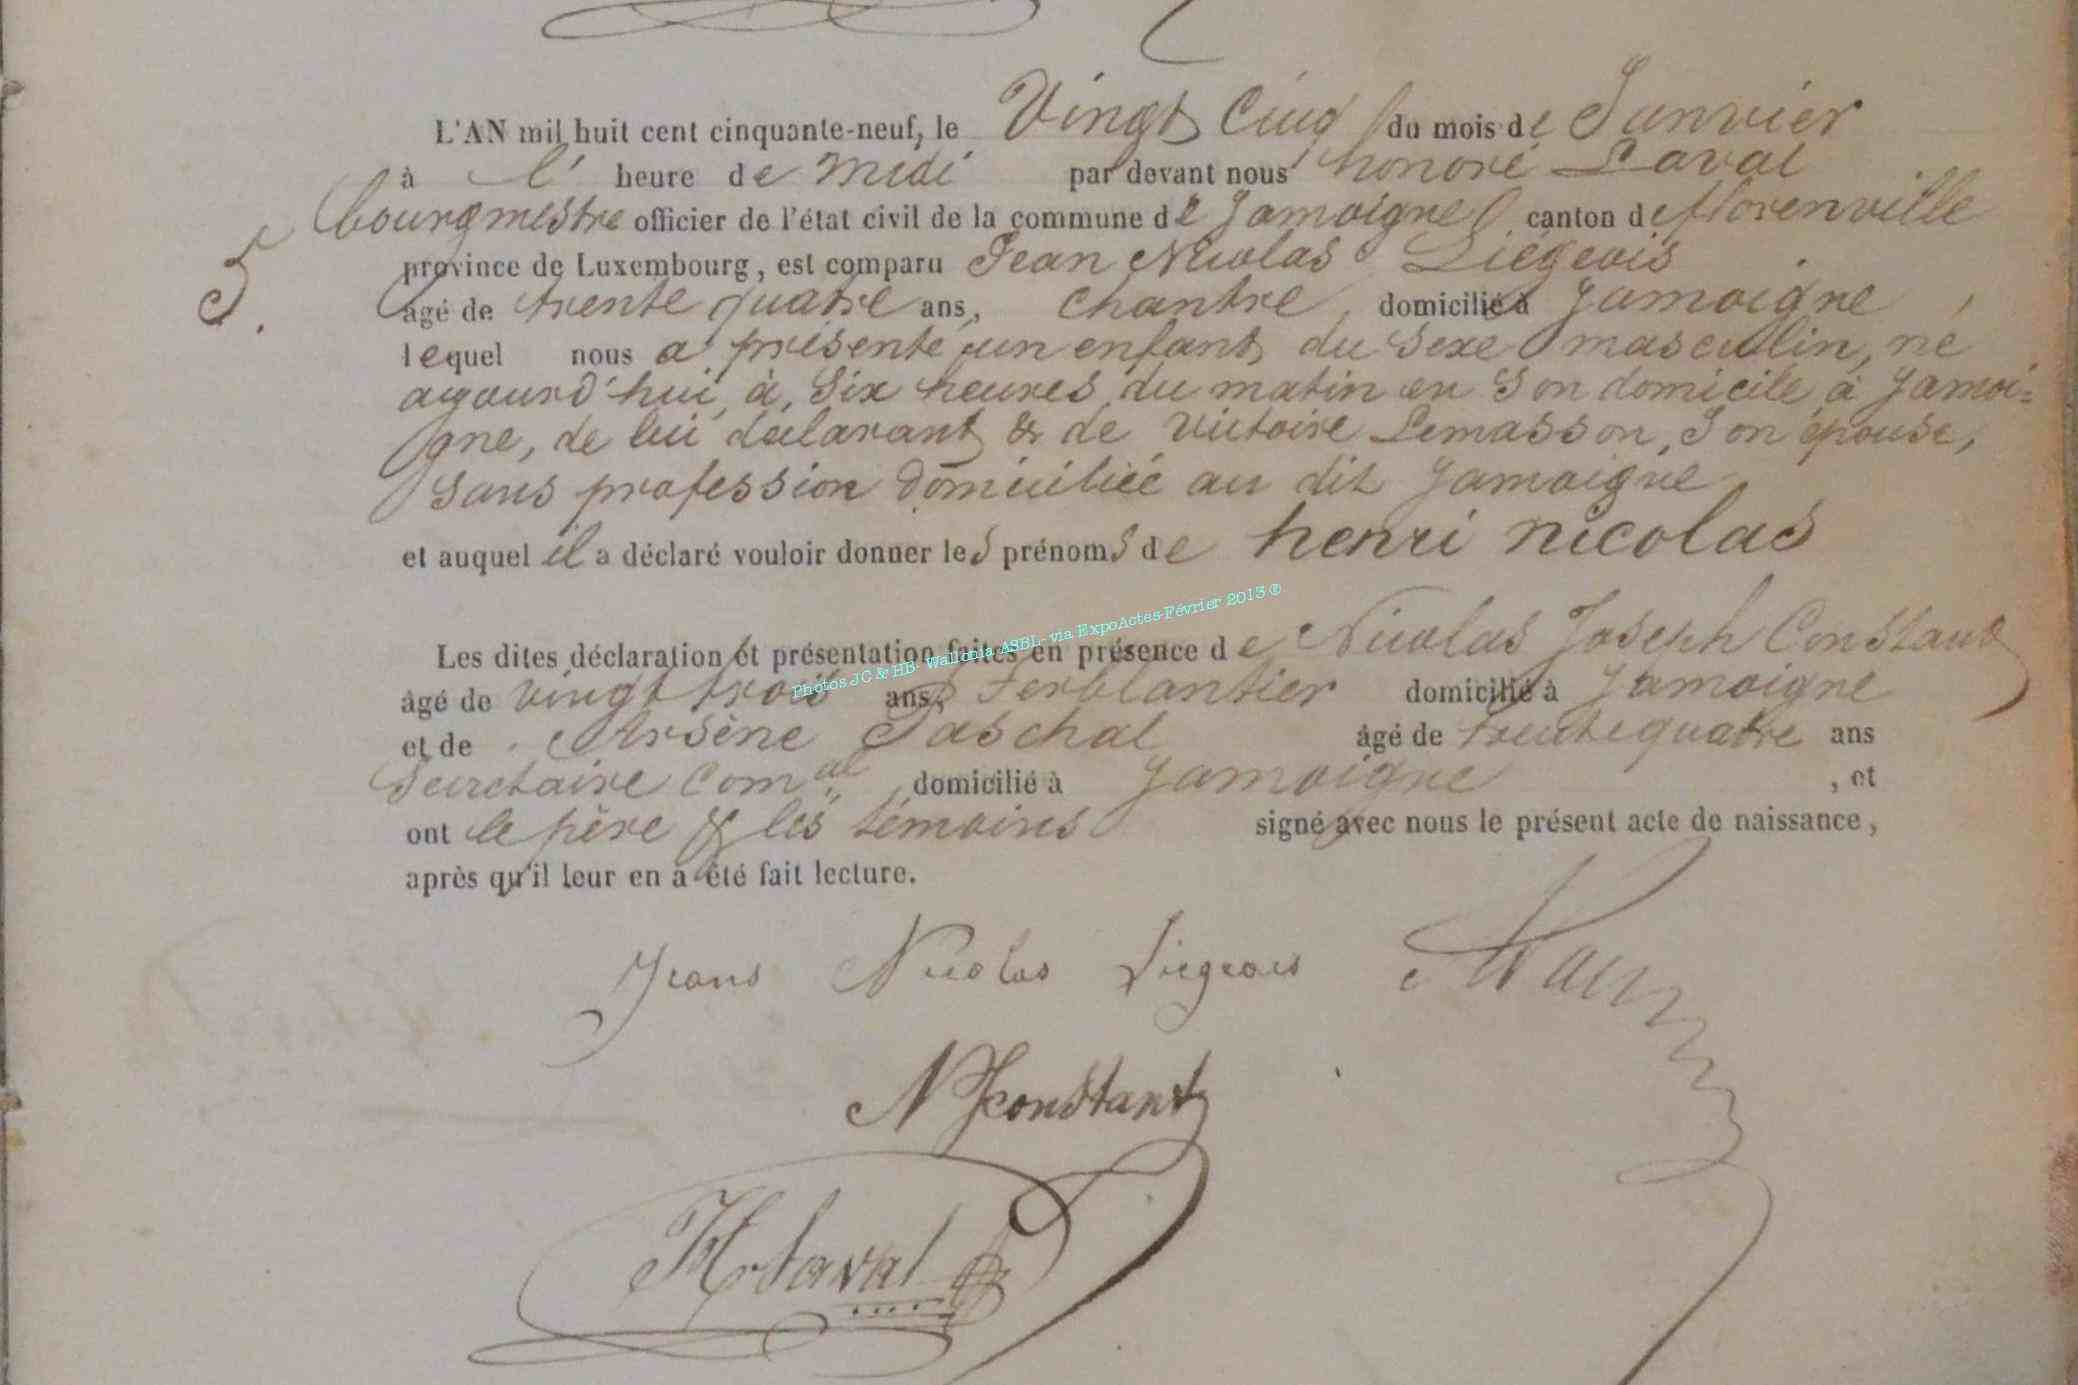 L'AN mil huit cent cinquante-neuf, le Vingt Cinq du mois de Janvier
à l' heure de midi par devant nous honoré Laval
bourgmestre officier de l'état civil de la commune de Jamoigne canton de florenville
province de Luxembourg, est comparu Jean Nicolas Liégeois
5.
âgé de trente quatre ans, chantre, domicilié à Jamoigne,
lequel nous a présenté un enfant du Sexe masculin, né
aujourd'hui, à Six heures du matin en Son domicile à Jamoi=
gne, de lui déclarant & de Victoire Lemasson, Son épouse,
Sans profession domiciliée au dit Jamoigne
et auquel il a déclaré vouloir donner les prénoms de henri nicolas
Les dites déclaration et présentation faites en présence de Nicolas Joseph Constant
Photos JC & HB- Wallonia ASBL- via ExpoActes-Février 2013 ®
âgé de vingt trois ans, Ferblantier domicilié à Jamoigne
et de Arsène Paschal âgé de trente quatre ans
Secrétaire Com.al domicilié à Jamoigne , et
ont le père & les témoins signé avec nous le présent acte de naissance,
après qu'il leur en a été fait lecture.
Jeans Nicolas Liegeois
NJConstant
H Laval